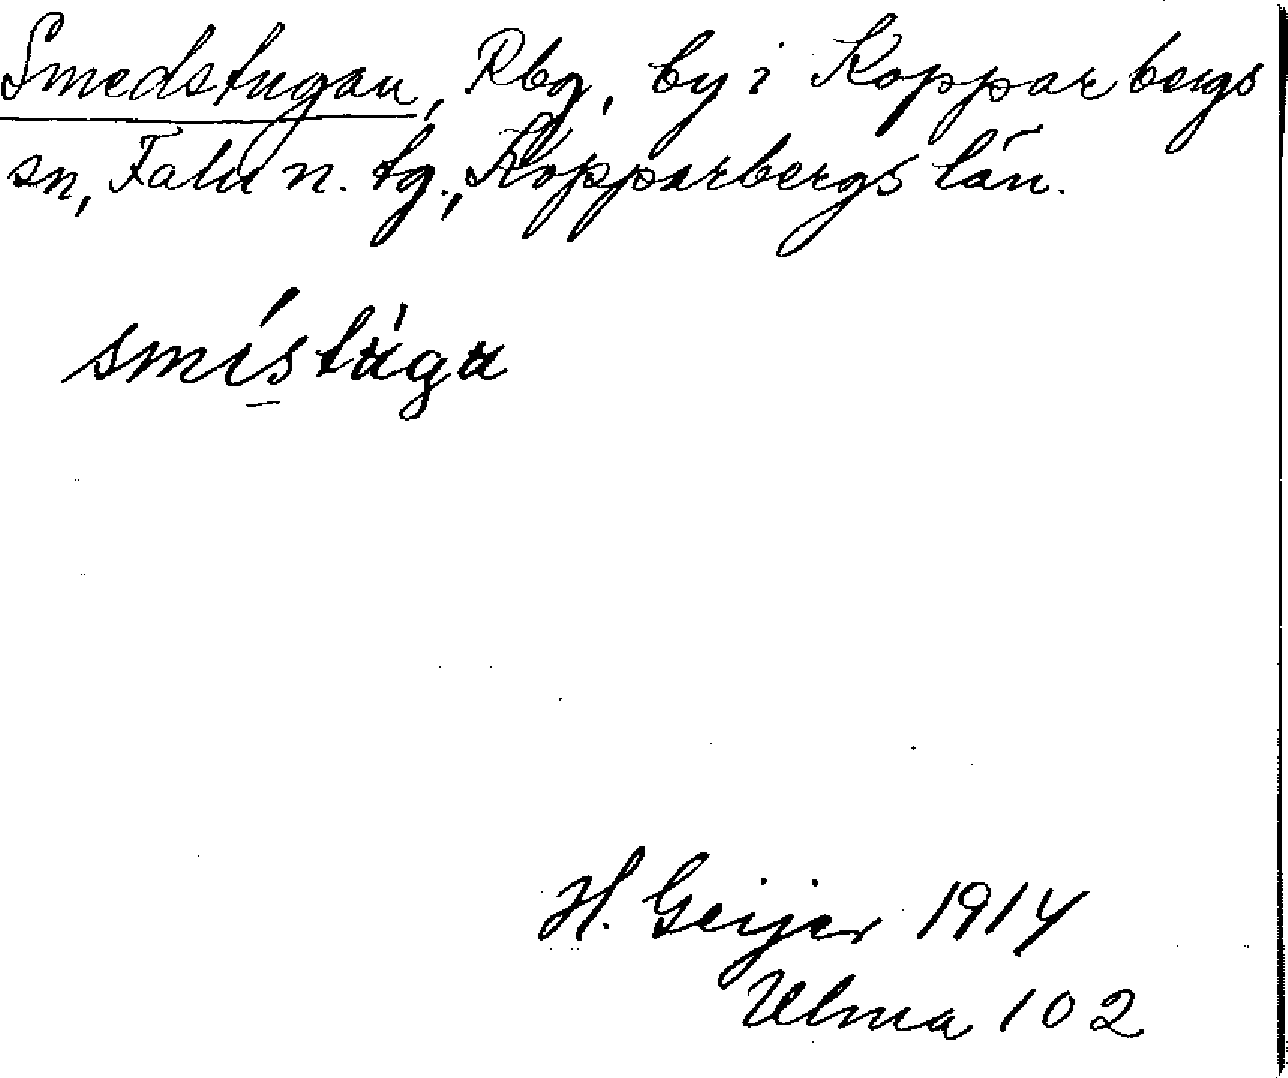 Smedstugan, Rbg, by i Kopparbergs
sn, Falu n. tg., Kopparbergs län.
smístùgu
H. Geijer 1914
Ulma 102